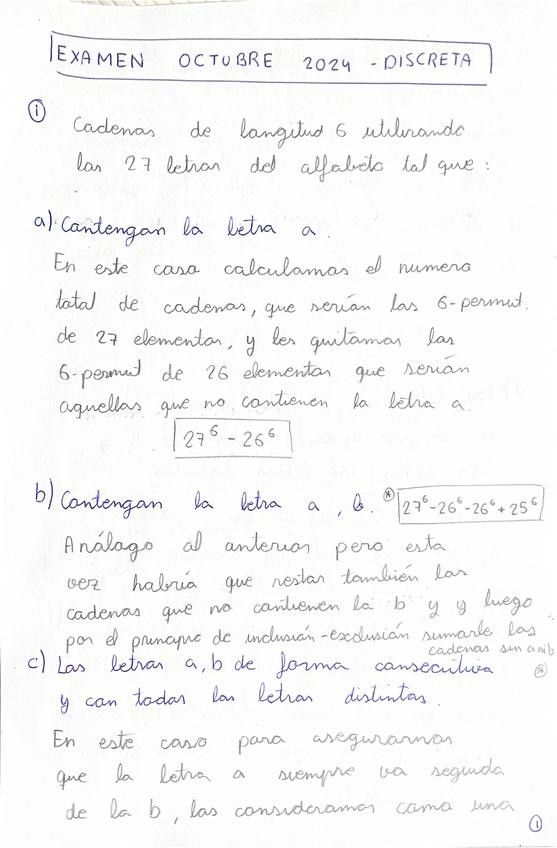 EXAMEN OCTUBRE 2024 - DISCRETA
①
Cadenas de longitud 6 utilizando
las 27 letras del alfabeto tal que:
a) Contengan la letra a.
En este caso calculamos el numero
total de cadenas, que serían las 6-permut.
de 27 elementos, y les quitamos las
6-permut de 26 elementos que serían
aquellas que no contienen la letra a.
27⁶ - 26⁶
b) Contengan la letra a, b. ⊛ 27⁶-26⁶-26⁶+25⁶
Análogo al anterior pero esta
vez habría que restar también las
cadenas que no contienen la b y y luego
por el principio de inclusión-exclusión sumarle las
cadenas sin a ni b
⊛
c) Las letras a, b de forma consecutiva
y con todas las letras distintas.
En este caso para asegurarnos
que la letra a siempre va seguida
de la b, las consideramos como una
①